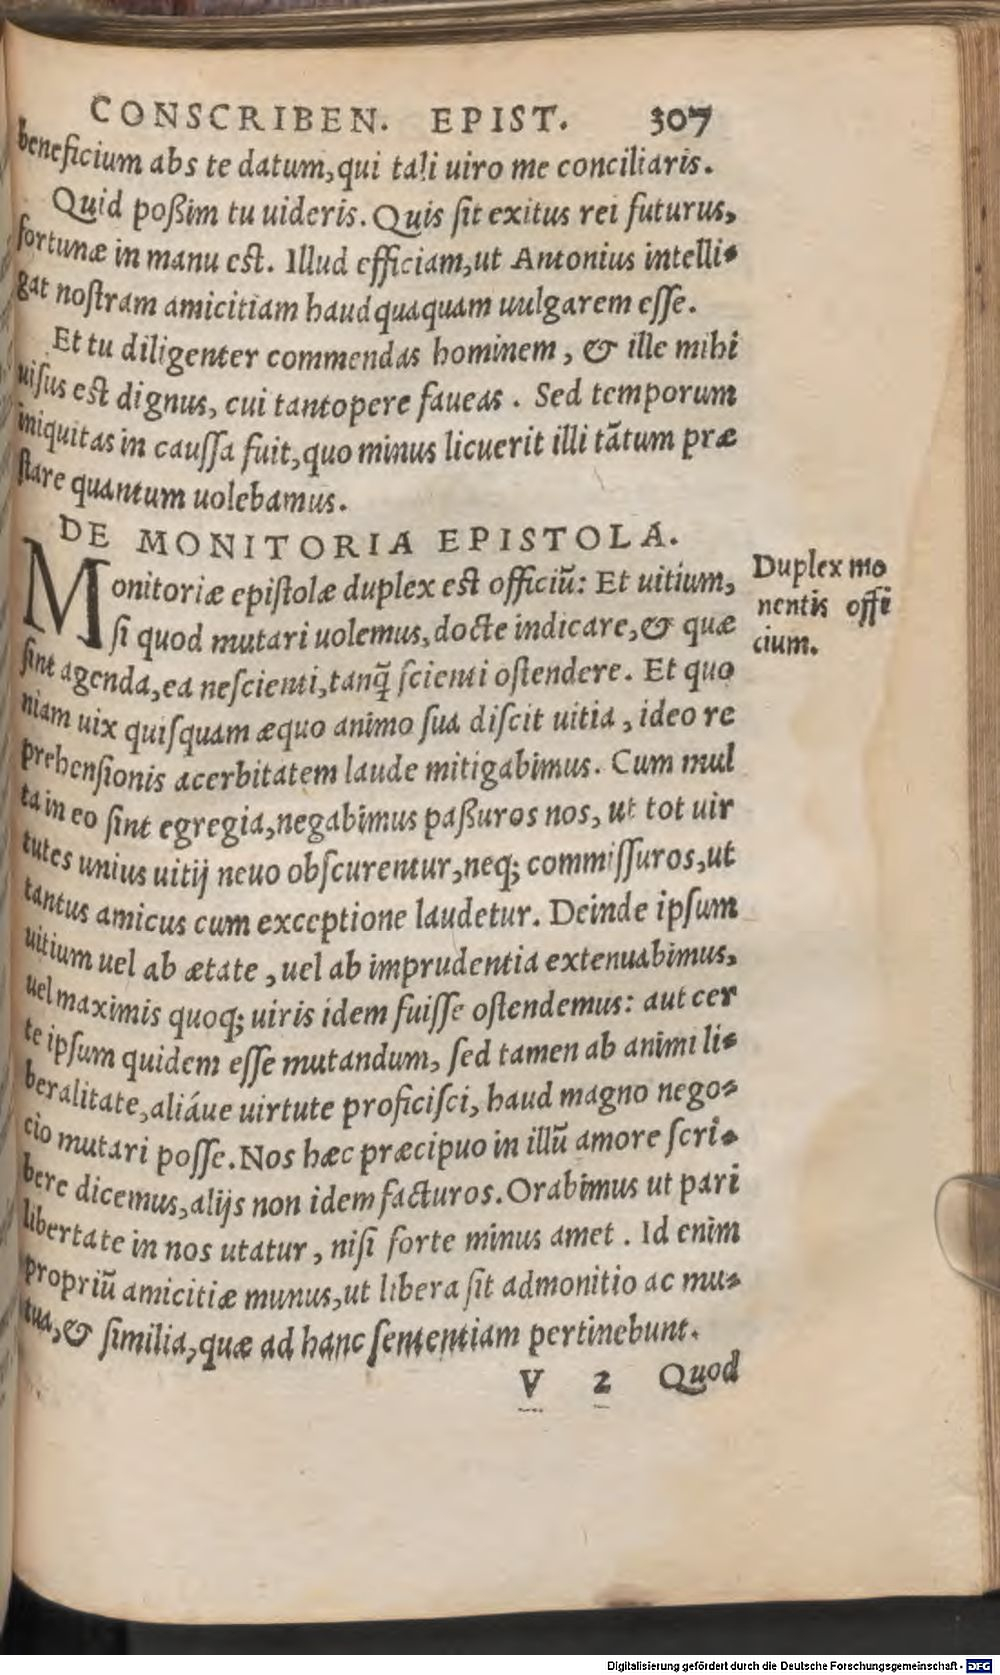 CONSCRIBEN. EPIST. 307
beneficium abs te datum, qui tali uiro me conciliaris.
Quid poßim tu uideris. Quis ſit exitus rei futurus,
fortunæ in manu eſt. Illud efficiam, ut Antonius intelli-
gat noſtram amicitiam haudquaquam uulgarem eſſe.
Et tu diligenter commendas hominem, & ille mihi
uiſus eſt dignus, cui tantopere faueas. Sed temporum
iniquitas in cauſſa fuit, quo minus licuerit illi tātum præ
ſtare quantum uolebamus.
DE MONITORIA EPISTOLA.
Monitoriæ epiſtolæ duplex eſt officiū: Et uitium,
ſi quod mutari uolemus, docte indicare, & quæ
ſint agenda, ea neſcienti, tanq̃ ſcienti oſtendere. Et quo
niam uix quiſquam æquo animo ſua diſcit uitia, ideo re
prehenſionis acerbitatem laude mitigabimus. Cum mul
ta in eo ſint egregia, negabimus paßuros nos, ut tot uir
tutes unius uitij neuo obſcurentur, neq; commiſſuros, ut
tantus amicus cum exceptione laudetur. Deinde ipſum
uitium uel ab ætate, uel ab imprudentia extenuabimus,
uel maximis quoq; uiris idem fuiſſe oſtendemus: aut cer
te ipſum quidem eſſe mutandum, ſed tamen ab animi li-
beralitate, aliáue uirtute proficiſci, haud magno nego-
cio mutari poſſe. Nos hæc præcipuo in illū amore ſcri-
bere dicemus, alijs non idem facturos. Orabimus ut pari
libertate in nos utatur, niſi forte minus amet. Id enim
propriū amicitiæ munus, ut libera ſit admonitio ac mu-
tua, & ſimilia, quæ ad hanc ſententiam pertinebunt.
V 2 Quod
Duplex mo
nentis offi
cium.
Digitalisierung gefördert durch die Deutsche Forschungsgemeinschaft - DFG